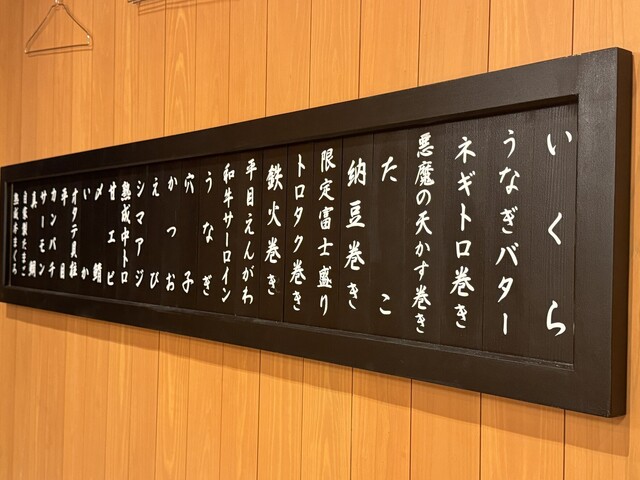 いくら
うなぎバター
ネギトロ巻き
悪魔の天かす巻き
たこ
納豆巻き
限定富士盛り
トロタク巻き
鉄火巻き
平目えんがわ
和牛サーロイン
うなぎ
穴子
かつお
えび
シマアジ
熟成中トロ
甘エビ
〆鯖
いか
ホタテ貝柱
平目
カンパチ
サーモン
真鯛
自家製たまご
熟成本まぐろ